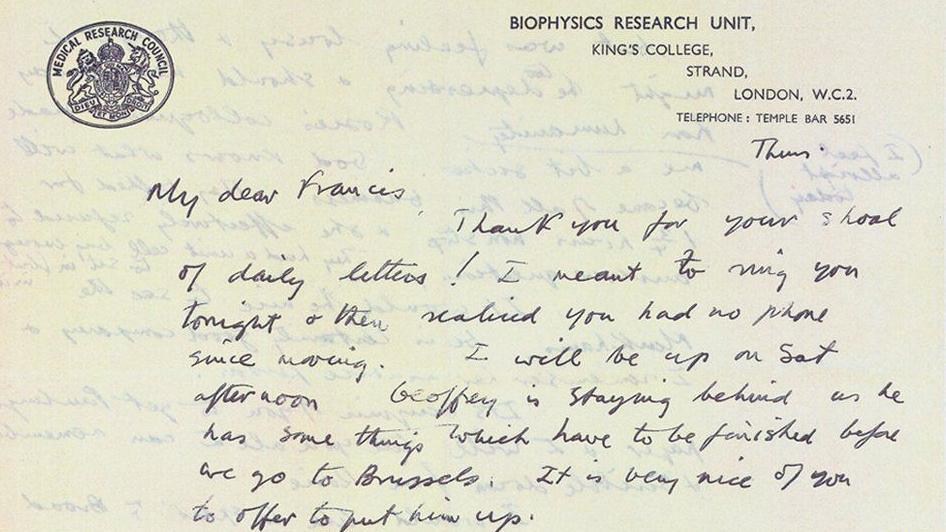 MEDICAL RESEARCH COUNCIL
DIEU ET MON DROIT
BIOPHYSICS RESEARCH UNIT,
KING'S COLLEGE,
STRAND,
LONDON, W.C.2.
TELEPHONE: TEMPLE BAR 5651
Thurs.
My dear Francis,
Thank you for your shoal
of daily letters! I meant to ring you
tonight & then realised you had no phone
since moving. I will be up on Sat
afternoon Geoffrey is staying behind as he
has some things which have to be finished before
we go to Brussels. It is very nice of you
to offer to put him up.